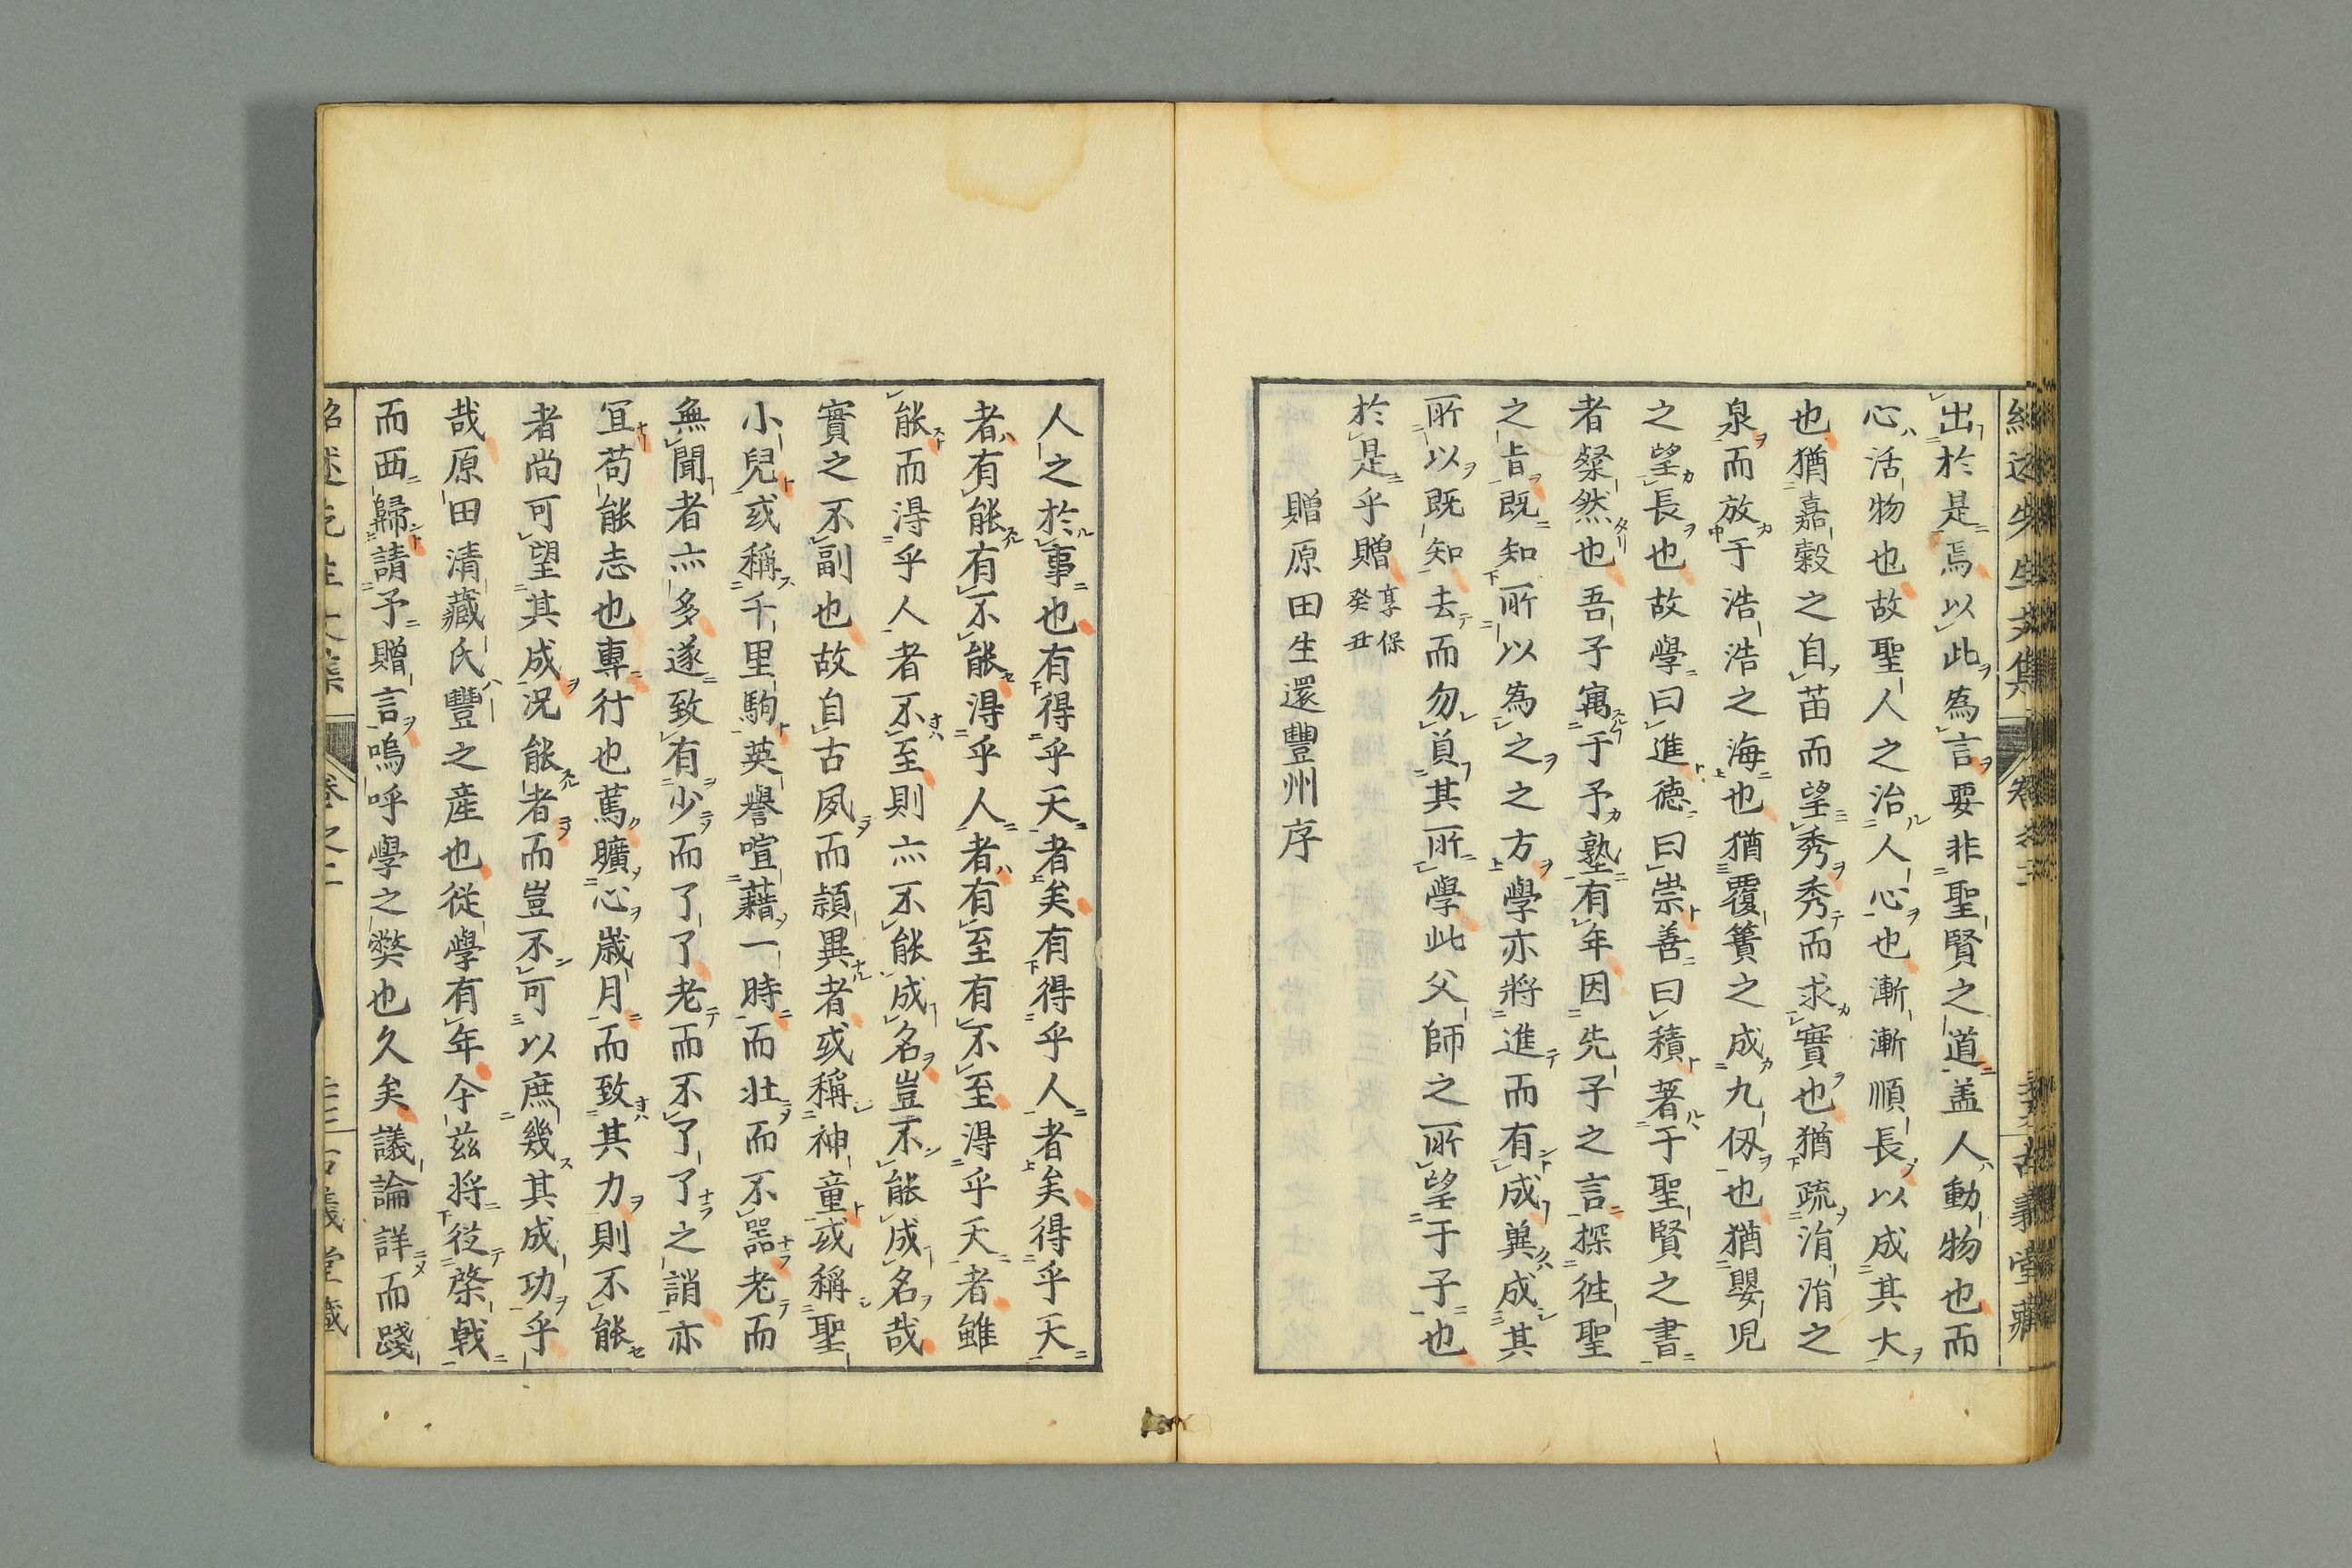 出於是焉以此為言要非聖賢之道蓋人動物也而
心活物也故聖人之治人心也漸漸順長以成其大
也猶嘉穀之自苗而望秀秀而求實也猶疏涓涓之
泉而放于浩浩之海也猶覆簣之成九仭也猶嬰児
之望長也故學曰進德曰崇善曰積著于聖賢之書
者粲然也吾子寓于予塾有年因先子之言探徃聖
之旨既知所以為之之方學亦將進而有成冀成其
所以既知去而勿負其所學此父師之所望于子也
於是乎贈享保癸丑
贈原田生還豐州序
人之於事也有得乎天者矣有得乎人者矣得乎天
者有能有不能得乎人者有至有不至得乎天者雖
能而得乎人者不至則亦不能成名豈不能成名哉
實之不副也故自古夙而頴異者或稱神童或稱聖
小兒或稱千里駒英譽喧藉一時而壯而不噐老而
無聞者亦多遂致有少而了了老而不了了之誚亦
冝苟能志也專行也蔫曠心歳月而致其力則不能
者尚可望其成况能者而豈不可以庶幾其成功乎
哉原田清藏氏豐之産也從學有年今茲将從棨戟
而西歸請予贈言嗚呼學之獘也久矣議論詳而踐